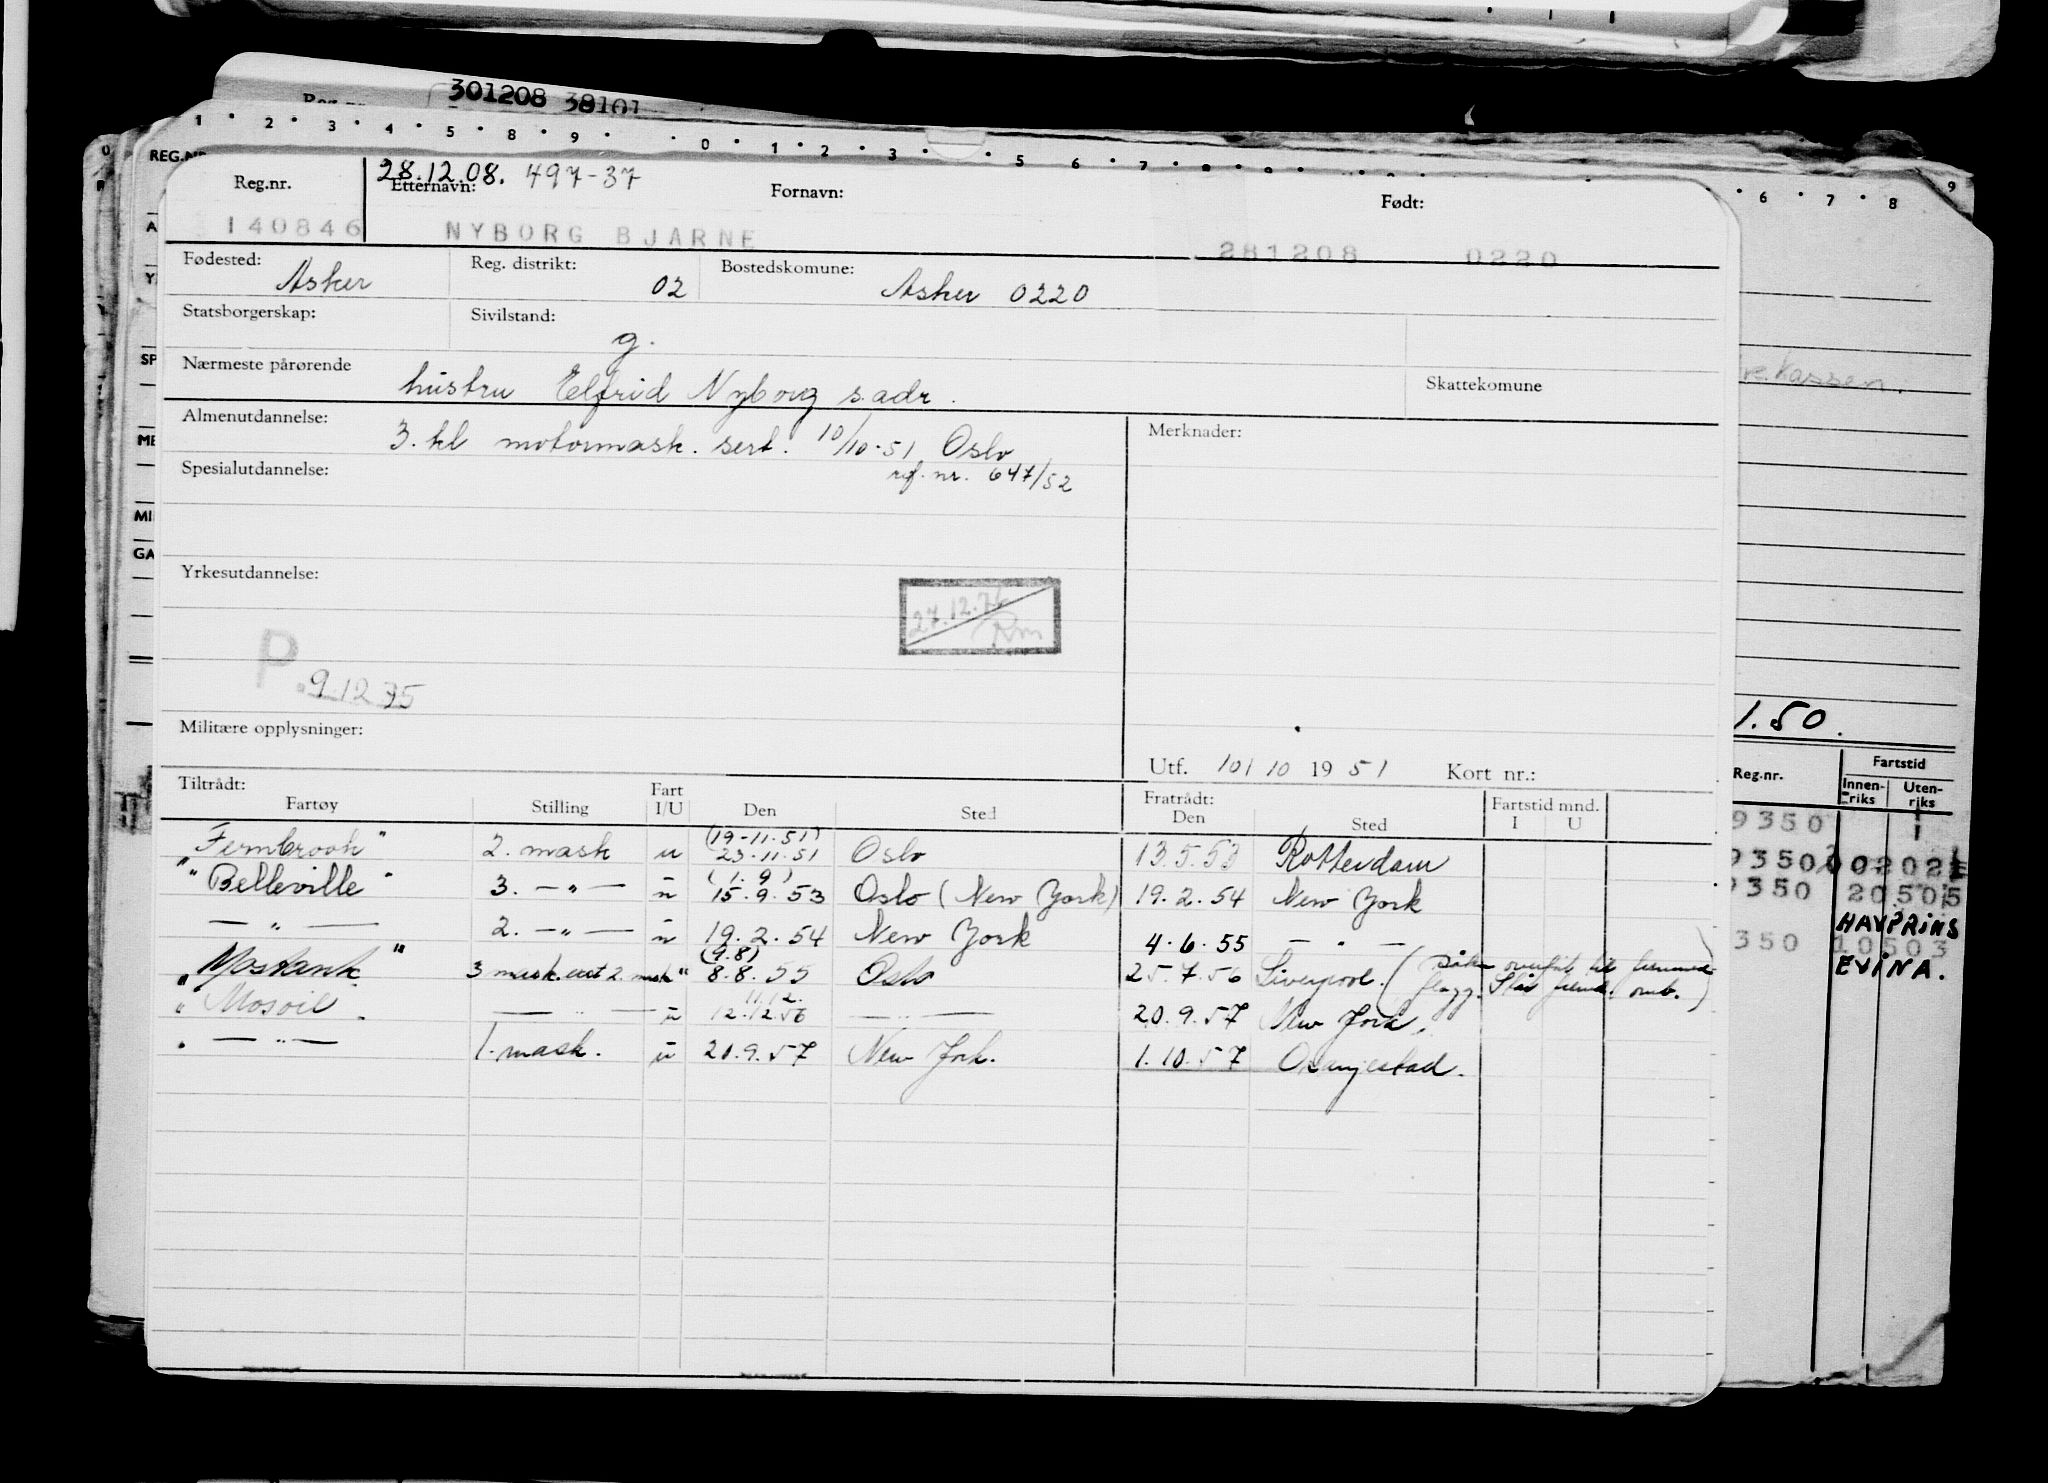 301208 38101
1 2 3 4 5 8 9 0 1 2 3 5 6 7
6 7 8 9
REG.NR
28.12.08. 497-37
Reg.nr. Etternavn: Fornavn: Født:
140846 NYBORG BJARNE 281208 0220
Fødested: Reg. distrikt: Bostedskomune:
Asker 02 Asker 0220
Statsborgerskap: Sivilstand:
g.
Nærmeste pårørende Skattekomune
hustru Elfrid Nyborg s.adr.
Almenutdannelse: Merknader:
3.kl motormask. sert. 10/10-51 Oslo
Spesialutdannelse: ref. nr. 647/52
Yrkesutdannelse:
27.12.76
Rm
P. 9.12.75
Militære opplysninger:
Utf. 10/10 1951 Kort nr.:
Tiltrådt: Fart Fratrådt: Fartstid mnd.
Fartøy Stilling I/U Den Sted Den Sted I U
(19-11.51)
"Fernbrook" 2. mask u 23.11.51 Oslo 13.5.53 Rotterdam
(1.9)
"Belleville" 3. — " — u 15.9.53 Oslo (New York) 19.2.54 New York
— " — 2. — " — u 19.2.54 New York 4.6.55 — " —
(9.8)
"Mostank" 3 mask. 2. mask " 8.8.55 Oslo 25.7.56 Liverpool. ( til
flagg. )
11.12.
"Mosoil" — " — u 12.12.56 — " — 20.9.57 New York.
" — " — 1. mask. u 20.9.57 New York. 1.10.57 Oranjestad.
kassen.
1.50.
Reg.nr. Fartstid
Innen-riks Uten-riks
9350
9350
9350 20505
HAVPRINS
350 10503
EVINA.